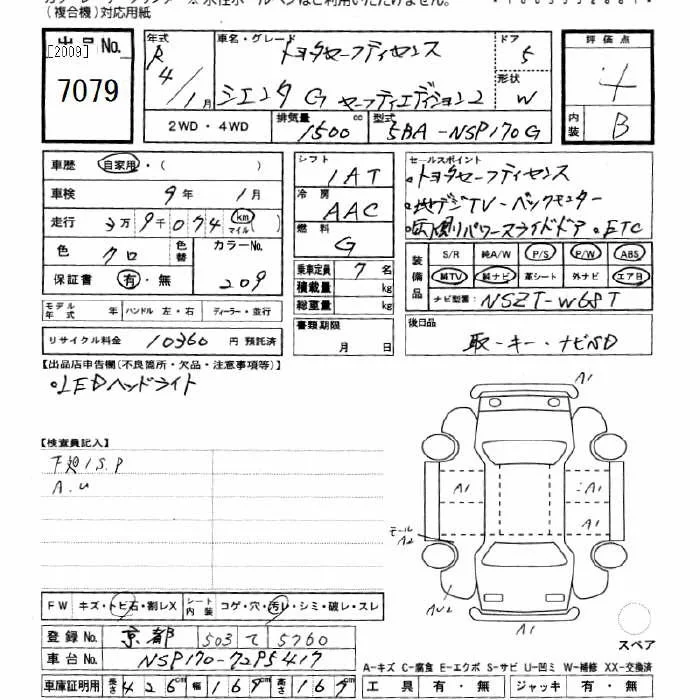 (複合機)対応用紙
出品No.
[2009]
7079
年式
R4/1月
車名・グレード
トヨタセーフティセンス
シエンタ G セーフティエディション2
ドア
5
形状
W
2WD・4WD
排気量
1500 cc
型式
5BA-NSP170G
評価点
4
内装
B
車歴 自家用・( )
車検 9年 1月
走行 3万9千074 km マイル
色 クロ 色替 カラーNo. 209
保証書 有・無
モデル年式 年 ハンドル 左・右 ディーラー・並行
リサイクル料金 10360円 預託済
シフト
1AT
冷房
AAC
燃料
G
乗車定員 7名
積載量 kg
総重量 kg
書類期限
月 日
セールスポイント
・トヨタセーフティセンス
・地デジTV・バックモニター
・両側パワースライドドア・ETC
装備品
S/R 純A/W P/S P/W ABS
純TV 純ナビ 革シート 外ナビ エア日
ナビ型番: NSZT-W68T
後日品
取・キー・ナビSD
【出品店申告欄(不良箇所・欠品・注意事項等)】
・LEDヘッドライト
【検査員記入】
下廻りS.P
A.U
A1
A1
A1
A1
モール
A2
AU2
A1
スペア
FW キズ・トビ石・割レX シート内装 コゲ・穴・汚レ・シミ・破レ・スレ
登録No. 京都 503 て 5760
車台No. NSP170-7295417
車庫証明用 長さ 426cm 幅 169cm 高さ 169cm
A-キズ C-腐食 E-エクボ S-サビ U-凹ミ W-補修 XX-交換済
工具 有・無 ジャッキ 有・無